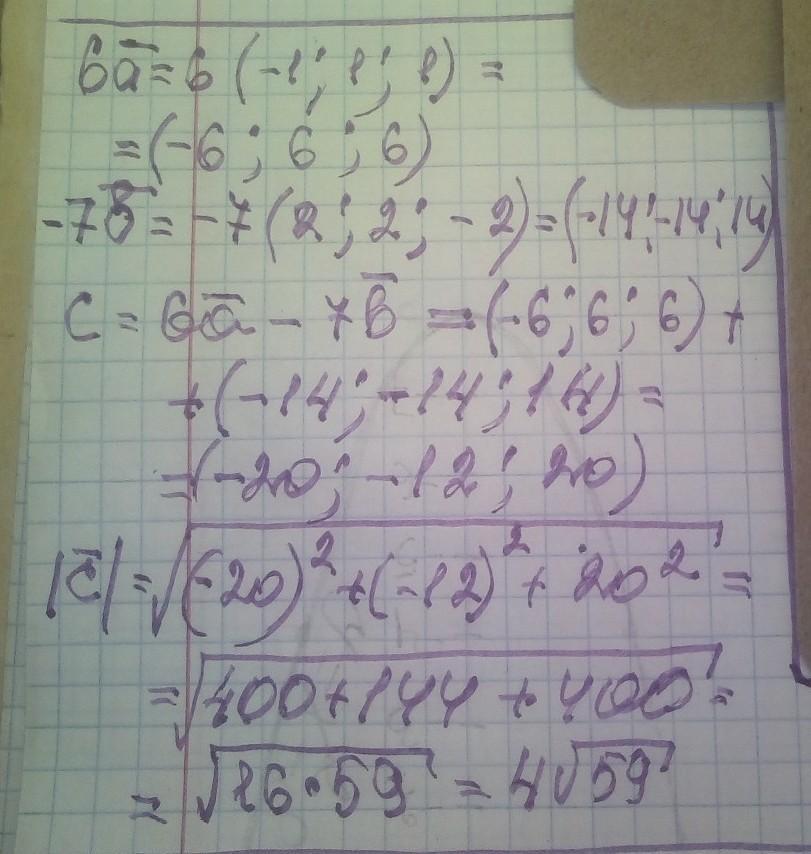 6a̅ = 6 (-1; 1; 1) =
= (-6; 6; 6)
-7b̅ = -7 (2; 2; -2) = (-14; -14; 14)
C = 6a̅ - 7b̅ = (-6; 6; 6) +
+ (-14; -14; 14) =
= (-20; -12; 20)
|c̅| = √((-20)² + (-12)² + 20²) =
= √(400 + 144 + 400) =
= √(16·59) = 4√59